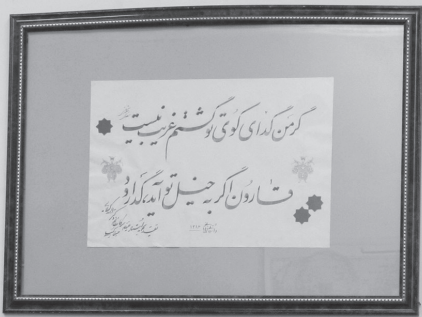 گر من گدای کوی تو گشتم غریب نیست
قارون اگر به خیل تو آید، گدا رود